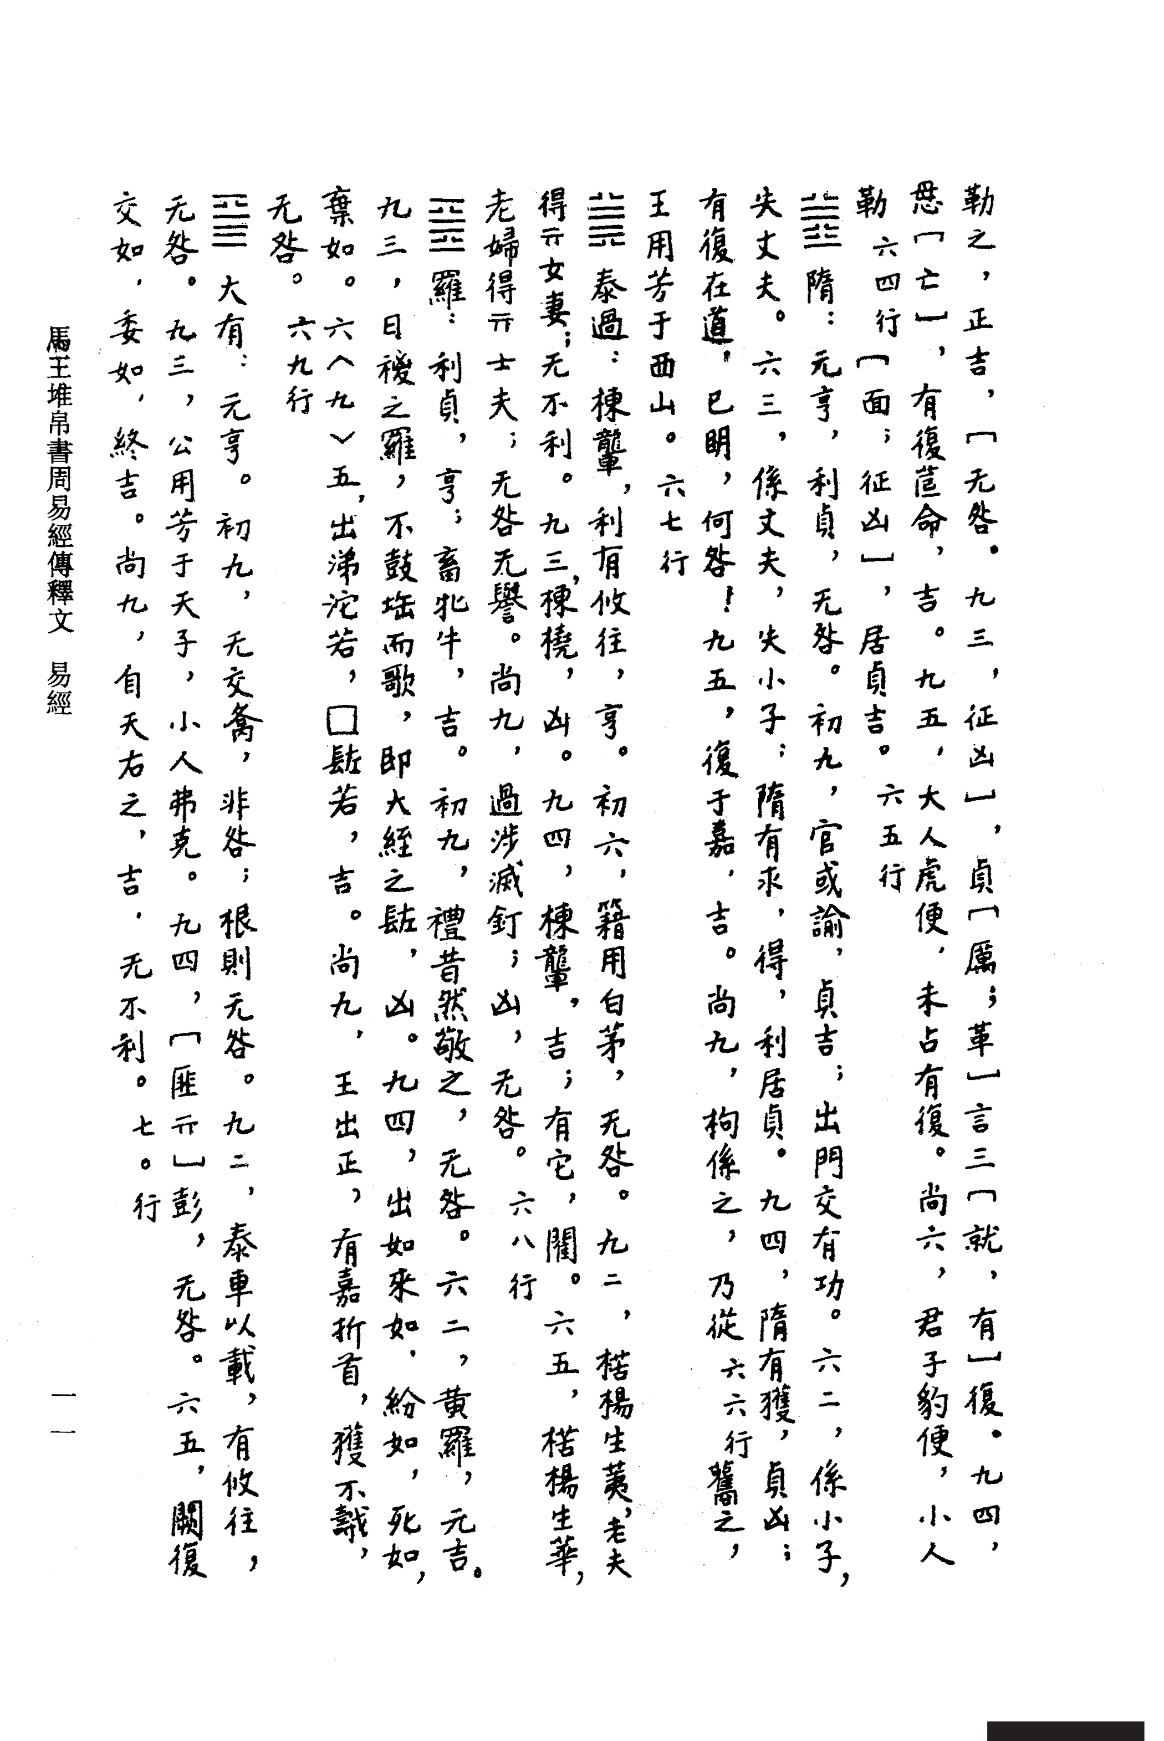 勒之，正吉，〔无咎。九三，征凶〕，貞〔厲；革〕言三〔就，有〕復。九四，
悬〔亡〕，有復苣命，吉。九五，大人虎便，未占有復。尚六，君子豹便，小人
勒六四行〔面；征凶〕，居貞吉。六五行
隋：元亨，利貞，无咎。初九，官或諭，貞吉；出門交有功。六二，係小子，
失丈夫。六三，係丈夫，失小子；隋有求，得，利居貞。九四，隋有獲，貞凶；
有復在道，已明，何咎！九五，復于嘉，吉。尚九，枸係之，乃從六六行巂之，
王用芳于西山。六七行
泰過：棟𨏫，利有攸往，亨。初六，籍用白茅，无咎。九二，楛楊生荑，老夫
得亓女妻；无不利。九三，棟橈，凶。九四，棟𨏫，吉；有它，閵。六五，楛楊生華，
老婦得亓士夫；无咎无譽。尚九，過涉滅釘；凶，无咎。六八行
羅：利貞，亨；畜牝牛，吉。初九，禮昔然敬之，无咎。六二，黃羅，元吉。
九三，日䙘之羅，不鼓㙁而歌，即大絰之𩑒，凶。九四，出如來如，紛如，死如，
棄如。六〈九〉五，出涕沱若，□𩑒若，吉。尚九，王出正，有嘉折首，獲不䤒，
无咎。六九行
大有：元亨。初九，无交禽，非咎；根則无咎。九二，泰車以載，有攸往，
无咎。九三，公用芳于天子，小人弗克。九四，〔匪亓〕彭，无咎。六五，闕復
交如，委如，終吉。尚九，自天右之，吉，无不利。七〇行
馬王堆帛書周易經傳釋文　易經
一一